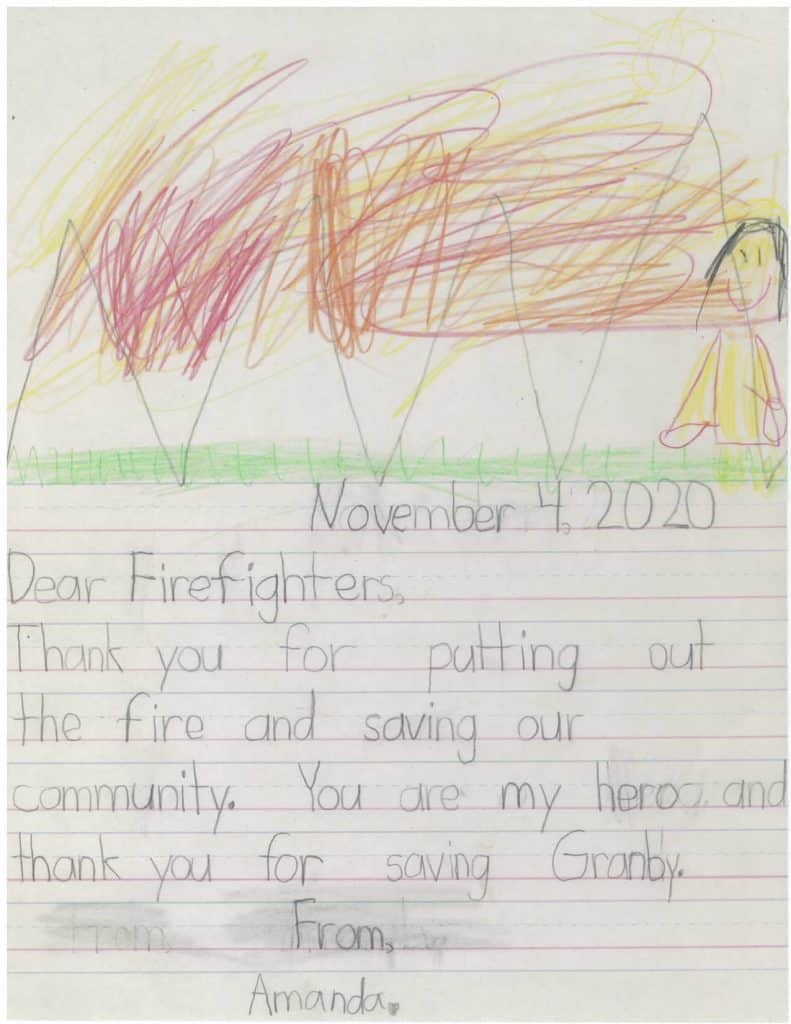 November 4, 2020
Dear Firefighters,
Thank you for putting out
the fire and saving our
community. You are my hero and
thank you for saving Granby.
From, From,
Amanda.